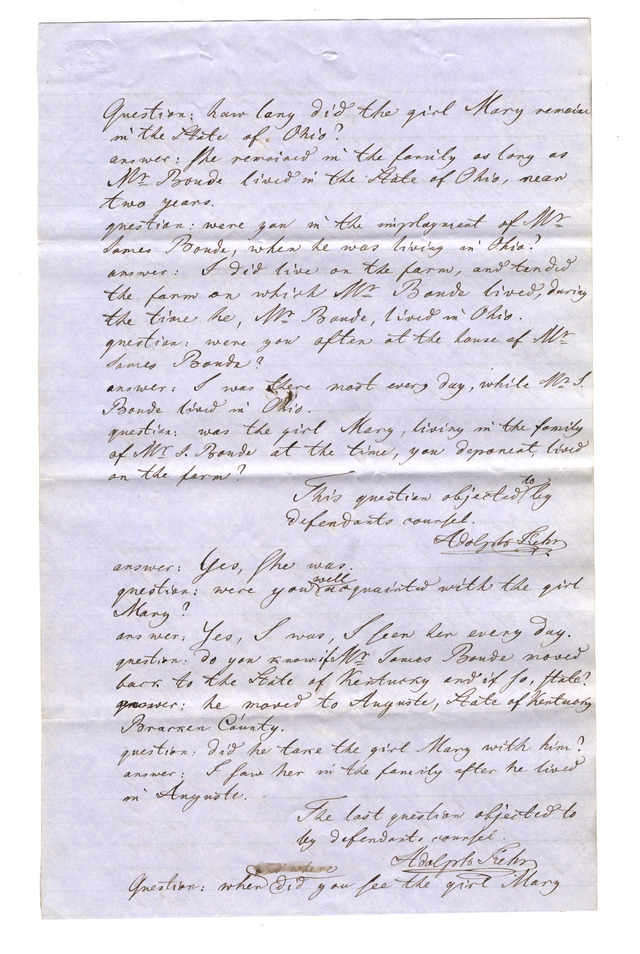 Question: how long did the girl Mary remain
in the State of Ohio?
answer: She remained in the family as long as
Mr Boude lived in the State of Ohio, near
two years.
question: were you in the imployment of Mr
James Boude, when he was living in Ohio?
answer: I did live on the farm, and tended
the farm on which Mr Boude lived, during
the time he, Mr Boude, lived in Ohio.
question: were you often at the house of Mr
James Boude?
answer: I was there most every day, while Mr J.
Boude lived in Ohio.
question: was the girl Mary, living in the family
of Mr J. Boude at the time, you deponent, lived
on the farm?
This question objected to by
defendants counsel.
Adolph
answer: Yes, She was.
question: were you well acquainted with the girl
Mary?
answer: Yes, I was, I seen her every day.
question: do you know if Mr James Boude moved
back to the State of Kentucky and if so, state?
answer: he moved to Auguste, State of Kentucky
Bracken County.
question: did he take the girl Mary with him?
answer: I saw her in the family after he lived
in Auguste.
The last question objected to
by defendants counsel.
Adolph
and where
Question: when did you see the girl Mary